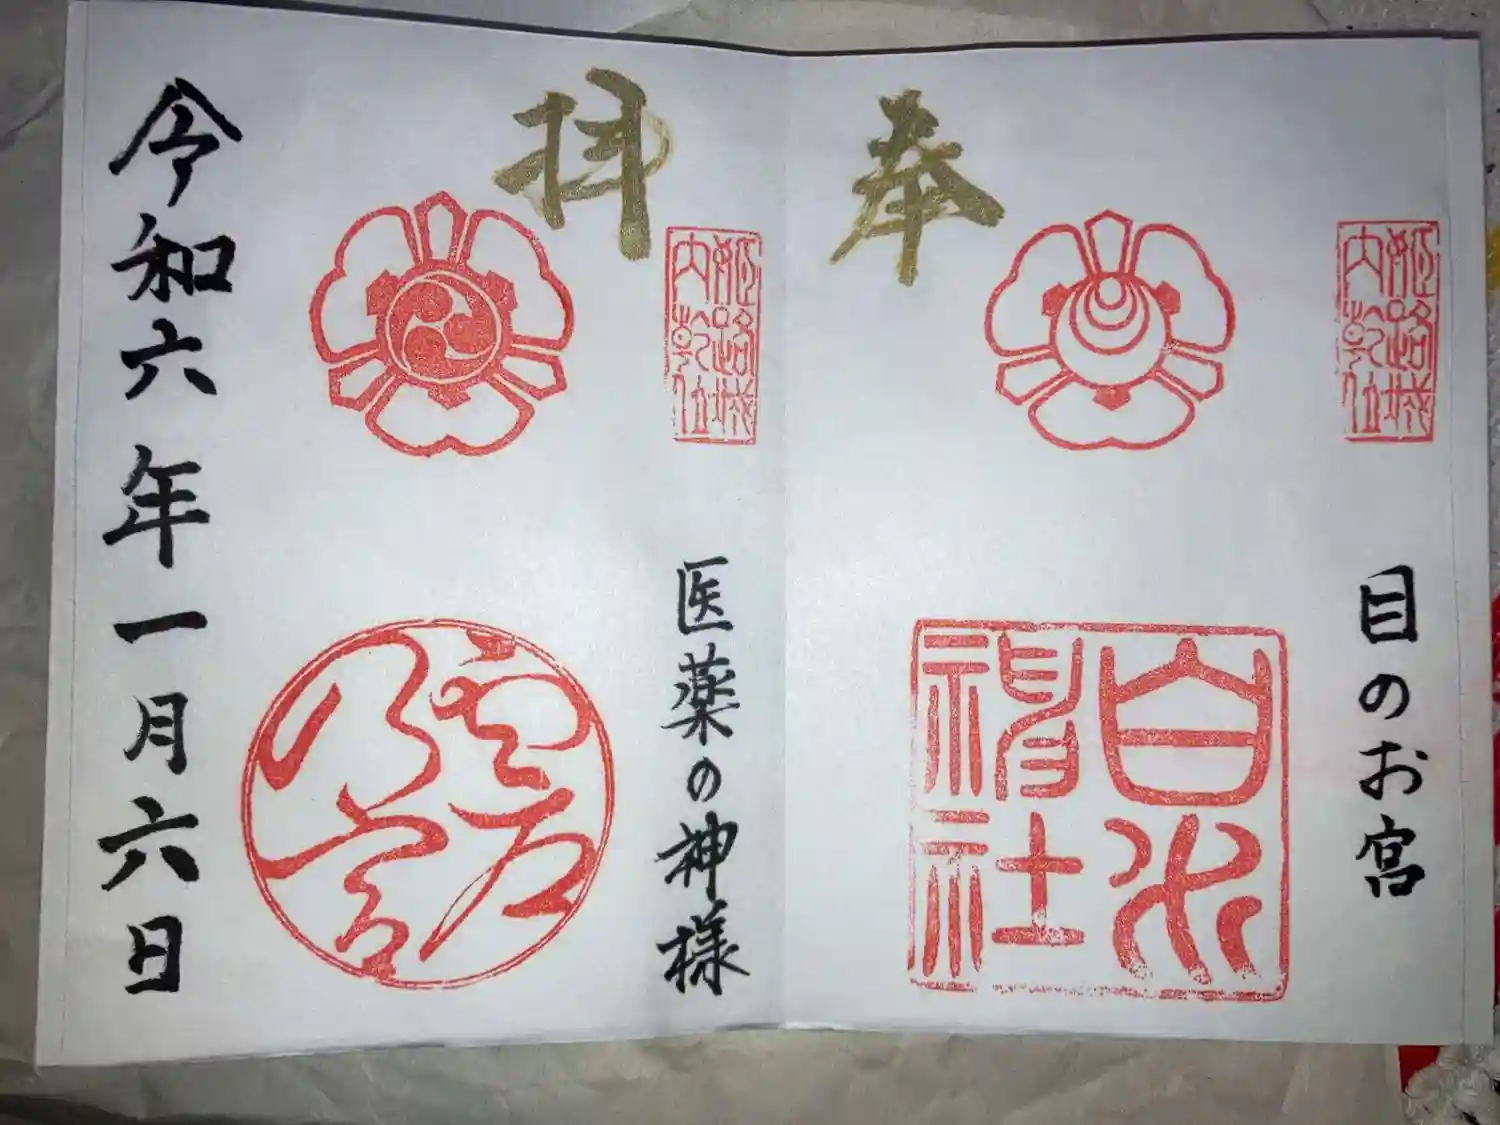 姫路城
内乾位
目のお宮
奉
白水
神社
姫路城
内乾位
医薬の神様
拝
令和六年一月六日